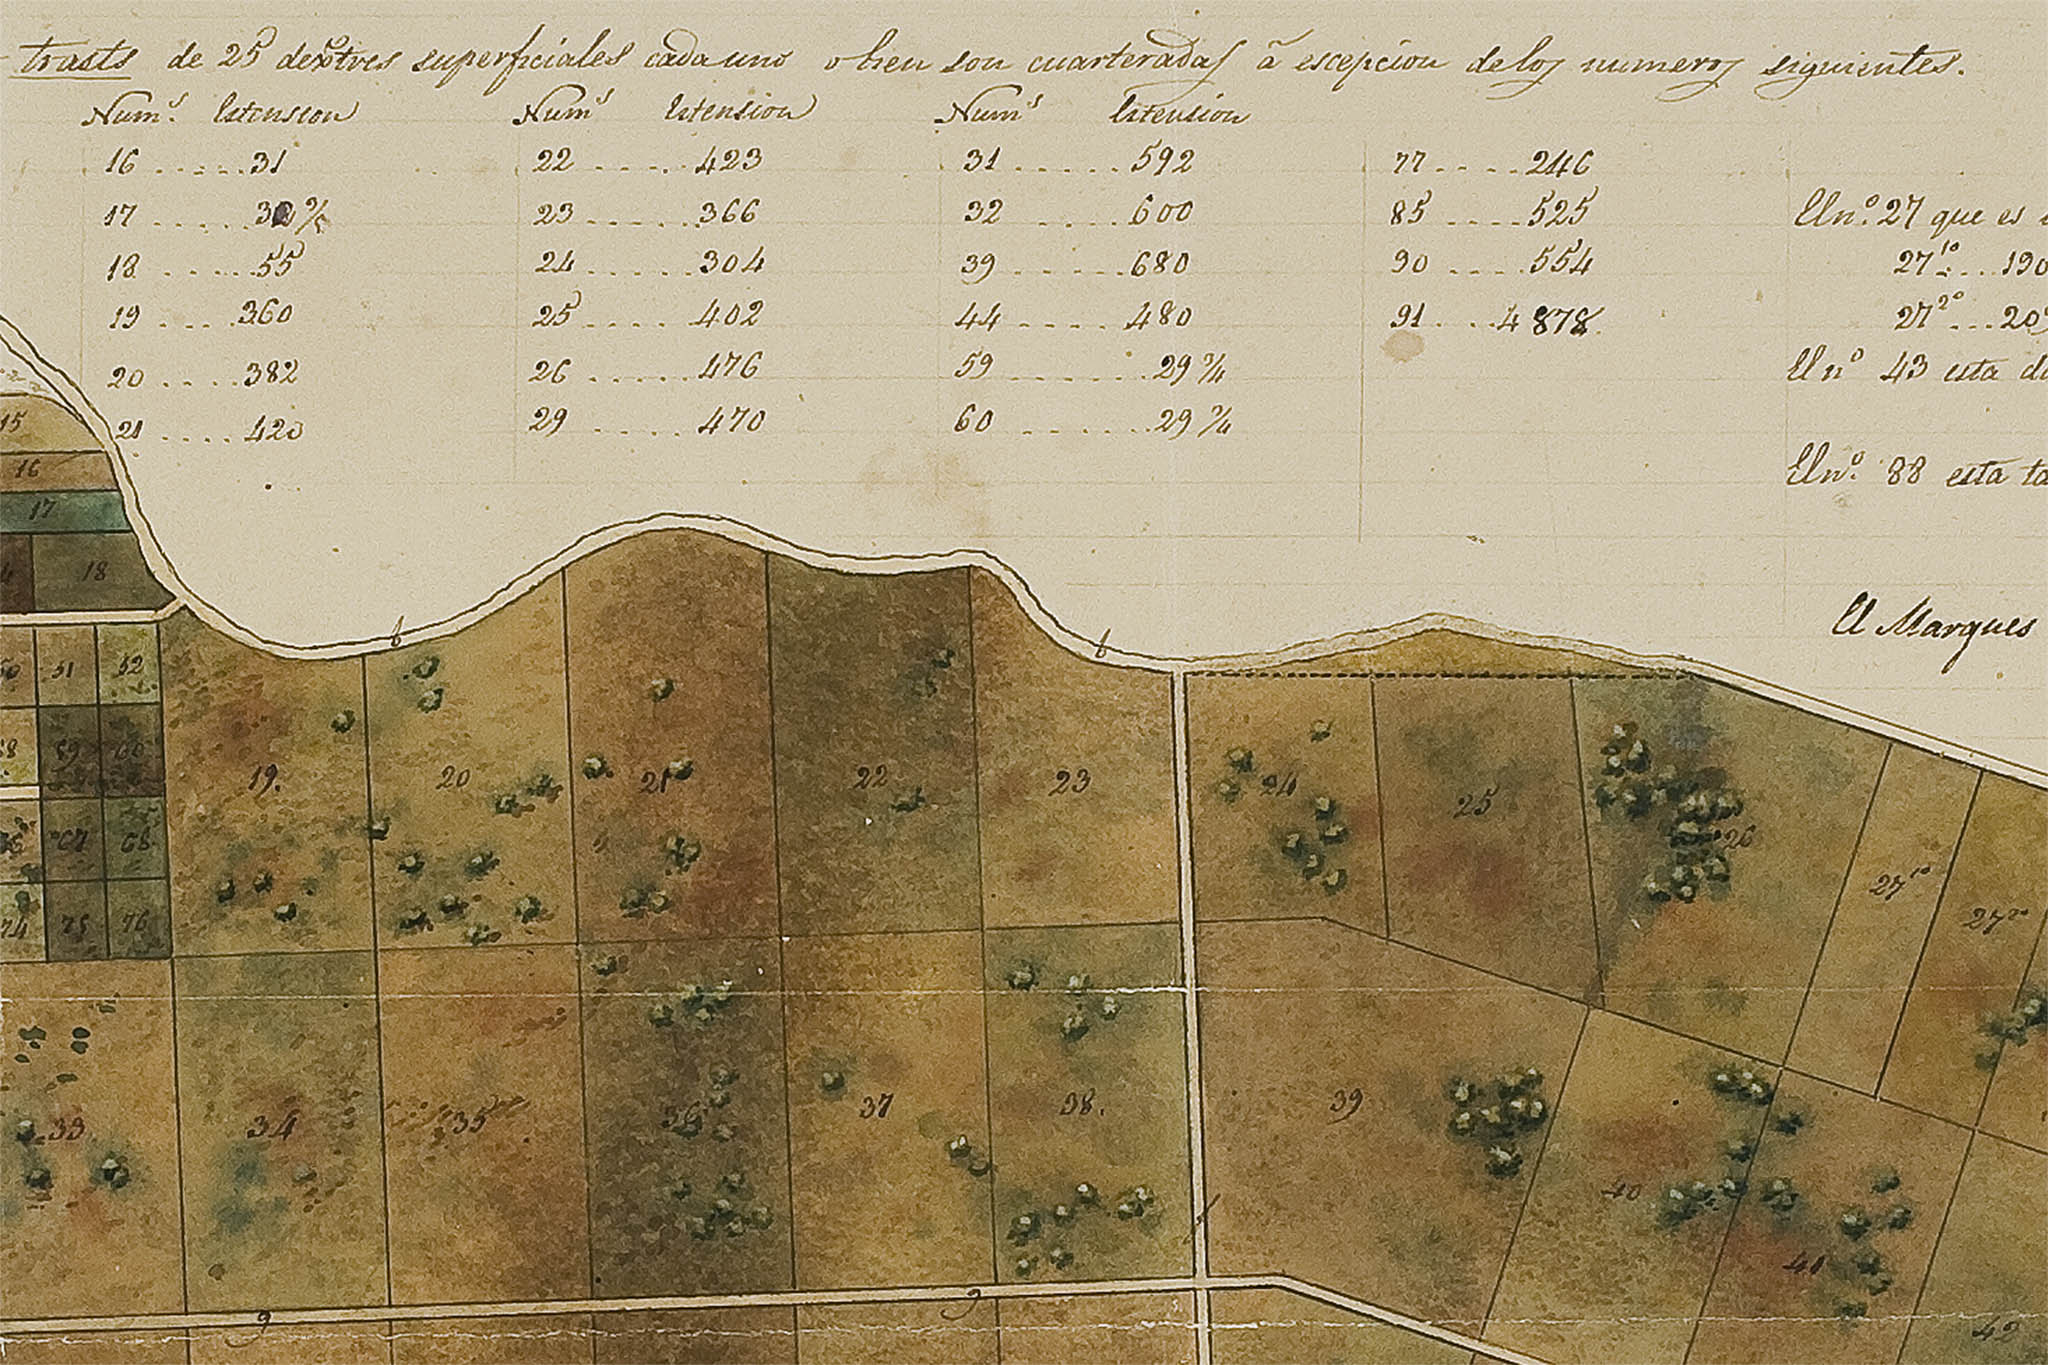 trasts de 25 dextres superficiales cada uno o bien son cuarteradas á escepcion de los numeros siguientes.
Num.s Estension Num.s Estension Num.s Estension
16 ..... 31 22 ..... 423 31 ..... 592 77 .... 246
17 ..... 23 ..... 366 32 ..... 600 85 .... 525 El n.o 27 que es
18 ..... 55 24 ..... 304 39 ..... 680 90 .... 554 27 1o ... 190
19 .... 360 25 .... 402 44 ..... 480 91 ... 4878 27 2o ... 20
20 .... 382 26 ..... 476 59 ....... 29 3/4 El no 43 esta
21 .... 420 29 ..... 470 60 ....... 29 3/4
El n.o 88 esta
El Marques
15
16
17
18
b b
51 52
19. 20 21 22 23 24 25 26 27 1o 27 2o
67 68
74 75 76
33 34 35 36 37 38. 39 40 41 42
9 9